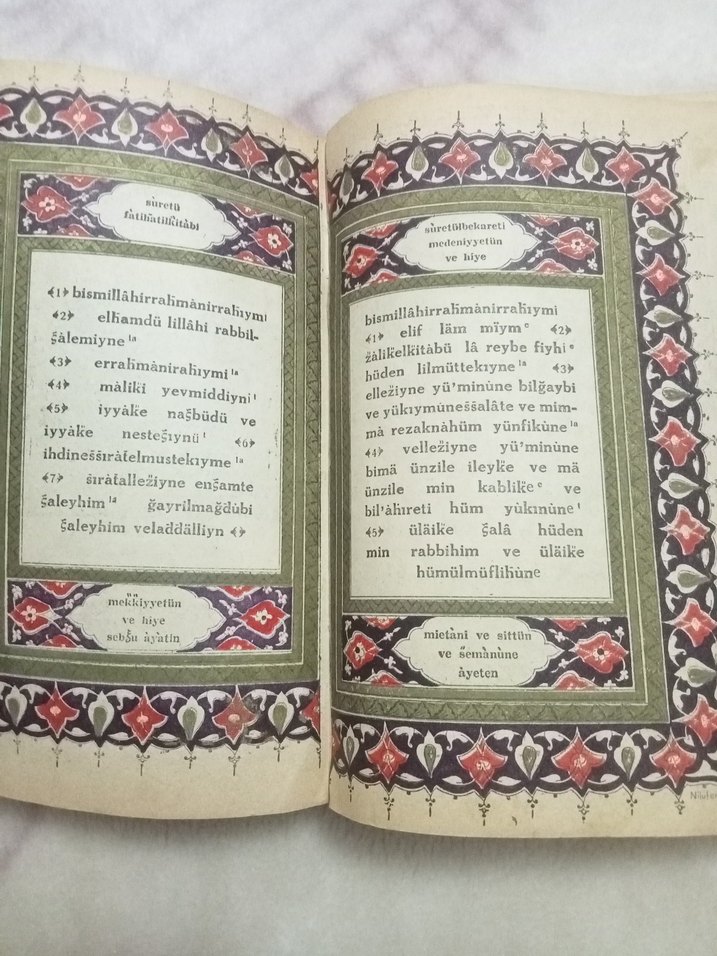 sùretü
fàtihatilkitàbi
﴾1﴿ bismillâhirrahmànirrahıymi
﴾2﴿ elhamdü lillâhi rabbil-
ṡàlemiyne ˡᵃ
﴾3﴿ errahmànirahıymi ˡᵃ
﴾4﴿ màliki yevmiddiyni ᵗ
﴾5﴿ iyyàke naṡbüdü ve
iyyàke nesteṡıynü ᵗ ﴾6﴿
ihdineṡṡıràtelmustekıyme ˡᵃ
﴾7﴿ ṡıràtalležiyne enṡamte
ṡaleyhim ˡᵃ ğayrilmağdùbi
ṡaleyhim veladdâlliyn ﴾﴿
mekkiyyetün
ve hiye
sebṡu àyàtin
sùretülbekareti
medeniyyetün
ve hiye
bismillâhirrahmànirrahıymi
﴾1﴿ elif läm mïym ᶜ ﴾2﴿
žàlikelkitàbü lâ reybe fiyhi ᵉ
hüden lilmüttekıyne ˡᵃ ﴾3﴿
elležiyne yü'minùne bilğaybi
ve yükıymùneṡṡalâte ve mim-
mà rezaknàhüm yünfikùne ˡᵃ
﴾4﴿ velležiyne yü'minùne
bimä ünzile ileyke ve mä
ünzile min kablike ᵉ ve
bil'àhıreti hüm yùkınùne ᵗ
﴾5﴿ üläike ṡalâ hüden
min rabbihim ve üläike
hümülmüflihùne
mietàni ve sittün
ve s̈emànùne
àyeten